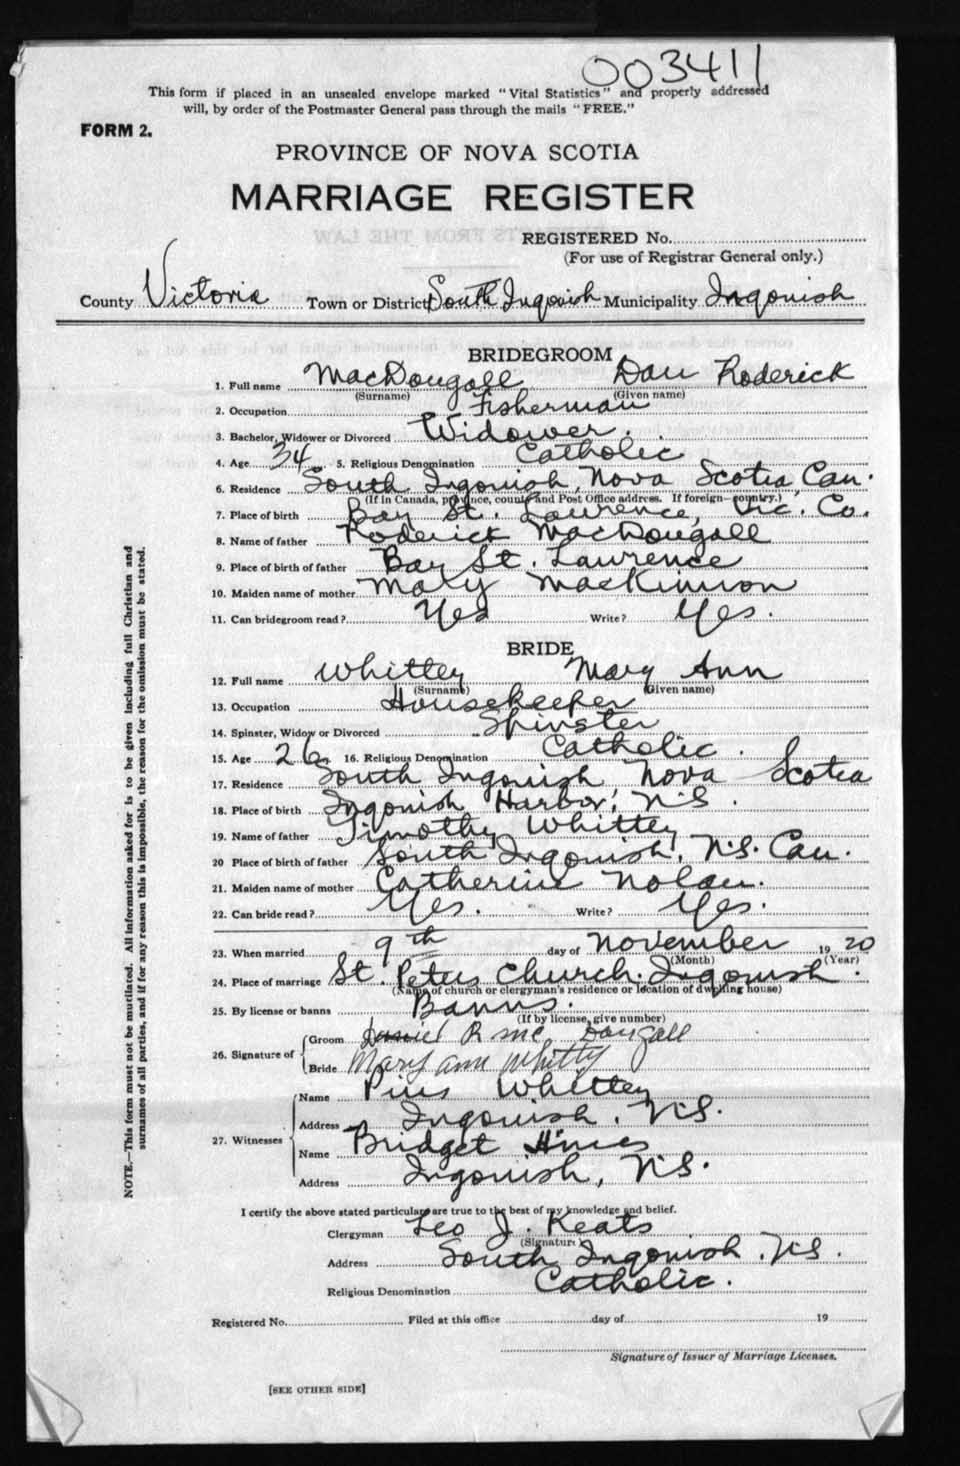 003411
This form if placed in an unsealed envelope marked "Vital Statistics" and properly addressed
will, by order of the Postmaster General pass through the mails "FREE."
FORM 2.
PROVINCE OF NOVA SCOTIA
MARRIAGE REGISTER
REGISTERED No.
(For use of Registrar General only.)
County Victoria Town or District South Ingonish Municipality Ingonish
BRIDEGROOM
1. Full name MacDougall Dan Roderick
(Surname) (Given name)
2. Occupation Fisherman
3. Bachelor, Widower or Divorced Widower.
4. Age 34 5. Religious Denomination Catholic
6. Residence South Ingonish, Nova Scotia Can.
(If in Canada, province, county and Post Office address. If foreign—country.)
7. Place of birth Bay St. Lawrence, Vic. Co.
8. Name of father Roderick MacDougall
9. Place of birth of father Bay St. Lawrence
10. Maiden name of mother Mary MacKinnon
11. Can bridegroom read? Yes Write? Yes.
BRIDE
12. Full name Whittey Mary Ann
(Surname) (Given name)
13. Occupation Housekeeper
14. Spinster, Widow or Divorced Spinster
15. Age 26 16. Religious Denomination Catholic.
17. Residence South Ingonish Nova Scotia
18. Place of birth Ingonish Harbor, N.S.
19. Name of father Timothy Whittey
20 Place of birth of father South Ingonish, N.S. Can.
21. Maiden name of mother Catherine Nolan.
22. Can bride read? Yes. Write? Yes.
23. When married 9th day of November 1920
(Month) (Year)
24. Place of marriage St. Peters Church. Ingonish.
(Name of church or clergyman's residence or location of dwelling house)
25. By license or banns Banns.
(If by license, give number)
26. Signature of
Groom Daniel R Mc Dougall
Bride Mary ann Whitty
27. Witnesses
Name Pius Whittey
Address Ingonish, N.S.
Name Bridget Hines
Address Ingonish, N.S.
I certify the above stated particulars are true to the best of my knowledge and belief.
Clergyman Leo J. Keats
(Signature)
Address South Ingonish. N.S.
Religious Denomination Catholic.
Registered No. Filed at this office day of 19
Signature of Issuer of Marriage Licenses.
[SEE OTHER SIDE]
NOTE.—This form must not be mutilated. All information asked for is to be given including full Christian and
surnames of all parties, and if for any reason this is impossible, the reason for the omission must be stated.